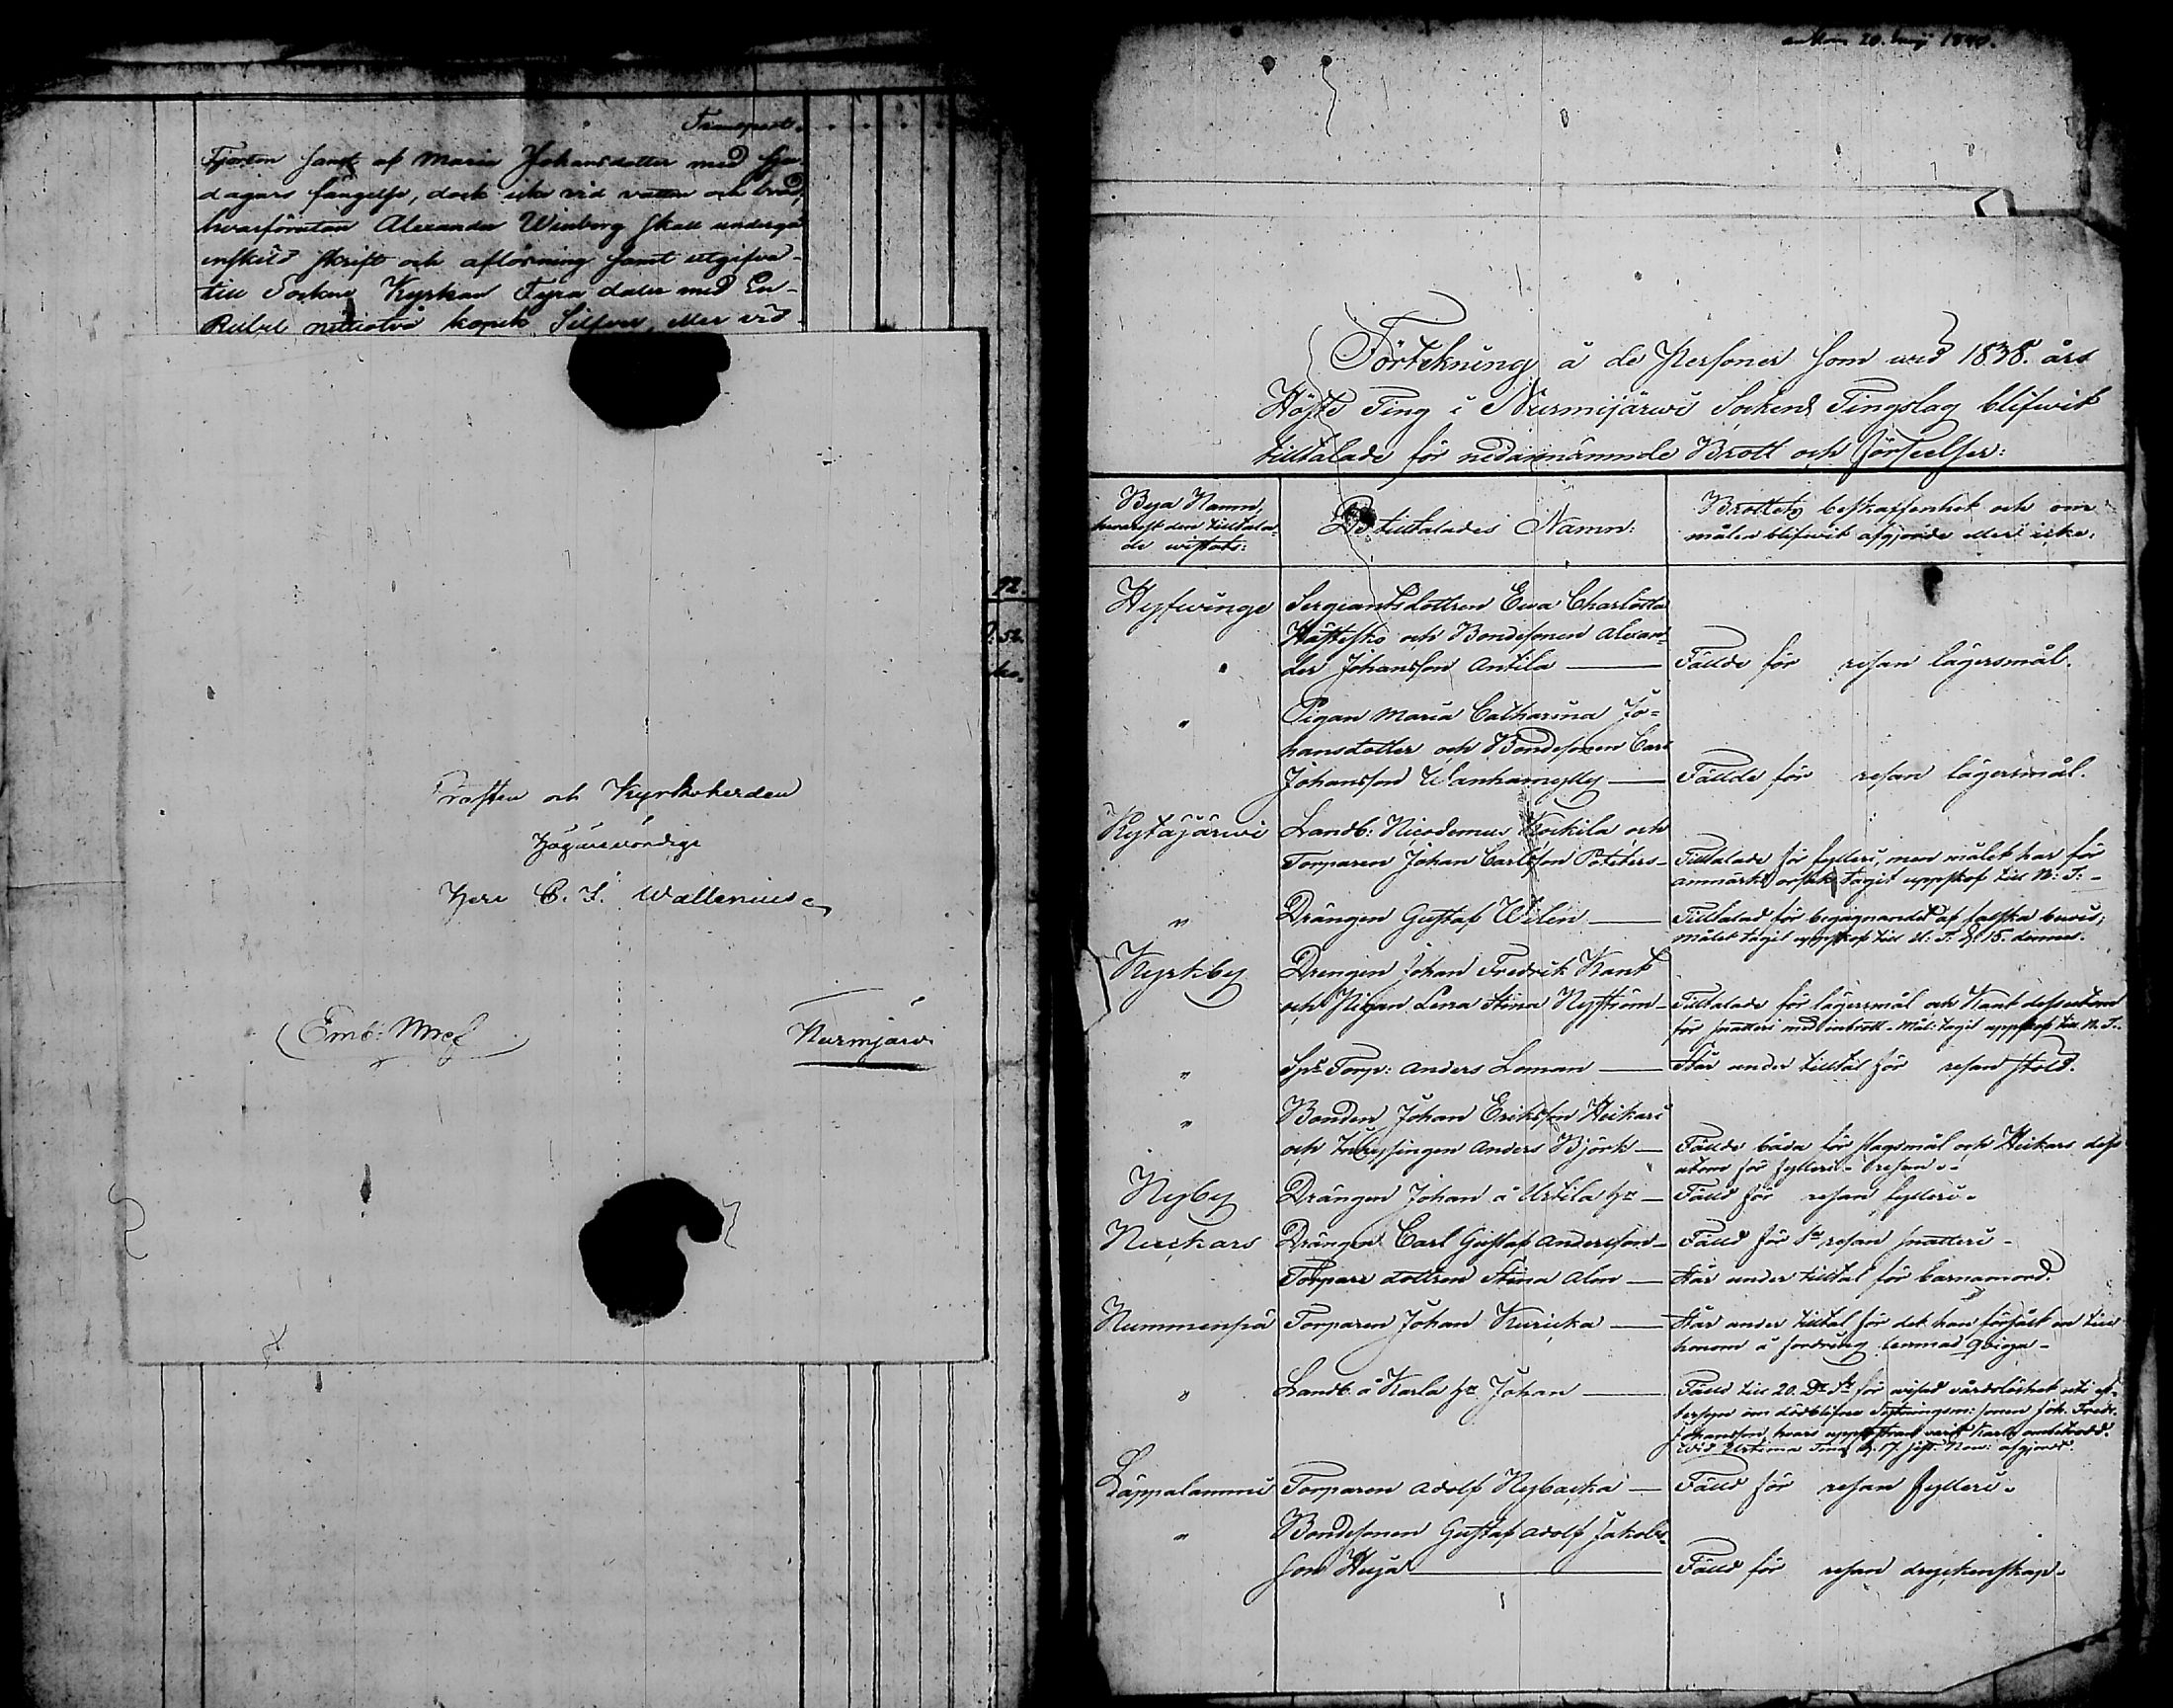 Transport.
Fjorton samt af Maria Johansdotter med
dagars fängelse, dock icke vid vatten och bröd,
hvarförutan Alexander Winberg skall undergå
enskild skrift och aflösning samt utgifva
till Sockne Kyrkan Fyra daler med En
Rubel nittiotvå kopek Silfver, eller vid
92.
Prosten och Kyrkoherden
Högvevördige
Herr C. J. Wallenius
Emb: Bref
Nurmjärvi
ankom 20. Maji 1840.
Förtekning å de Personer som wid 1838. års
Höste Ting i Nurmijärwi Sockens Tingslag blifwit
tilltalade för nedannämnde Brott och förseelser:
Bya Namn,
hwarest den tilltala-
de wistats:
De tilltalades Namn:
Brottets beskaffenhet och om
målen blifwit afgjorde eller icke.
Hyfwinge
Sergeantsdottren Ewa Charlotta
Hästesko och Bondesonen Alexan-
der Johansson Antila
Fällde för resan lägersmål.
"
Pigan Maria Catharina Jo-
hansdotter och Bondesonen Carl
Johansson Wanhamylly
Fällde för resan lägersmål.
Kytäjärwi
Landb: Nicodemus Kockila och
Torparen Johan Carlsson
Tilltalade för fylleri, men målet har för
anmärkt orsak tagit uppskof till N: T:
"
Drängen Gustaf Wilén
Tilltalad för begagnandet af falska bewis;
målet tagit uppskof till U: T: d. 15. dennes.
Kyrkby
Drengen Johan Fredrik Kank
och Pigan Lena Stina Nyström
Tilltalade för lägersmål och Kank dessutom
för snatteri med inbrott. Mål: tagit uppskof till N. T.
"
Sps Torp: Anders Loman
Står under tilltal för resan stöld.
"
Bonden Johan Eriksson Heikari
och Inhysingen Anders Björk
Fällde båda för slagsmål och Heikari dess
utom för fylleri resan
Nyby
Drängen Johan å Urtila hn
Fälld för resan fylleri.
Nuckars
Drängen Carl Gustaf Andersson
Fälld för 1a resan snatteri
Torpare dottren Stina Alm
Står under tilltal för barnamord.
Nummenpä
Torparen Johan Kuricka
Står under tilltal för det han förfalt en till
honom å fordring lemnad qviga
"
Landb å Karla hn Johan
Fälld till 20. Dr St för wisad wårdslöshet uti ef-
tersyn om dödblifne Sytningsm: sonen Joh. Fredr.
Johansson, hvars uppfostran varit Karla ombetrodd.
wid Urtima Ting d. 17 sist. Now: afgjord.
Läppälammi
Torparen Adolf Nybacka
Fälld för resan fylleri.
"
Bondesonen Gustaf Adolf Jakobs-
son Huja
Fälld för resan dryckenskap.